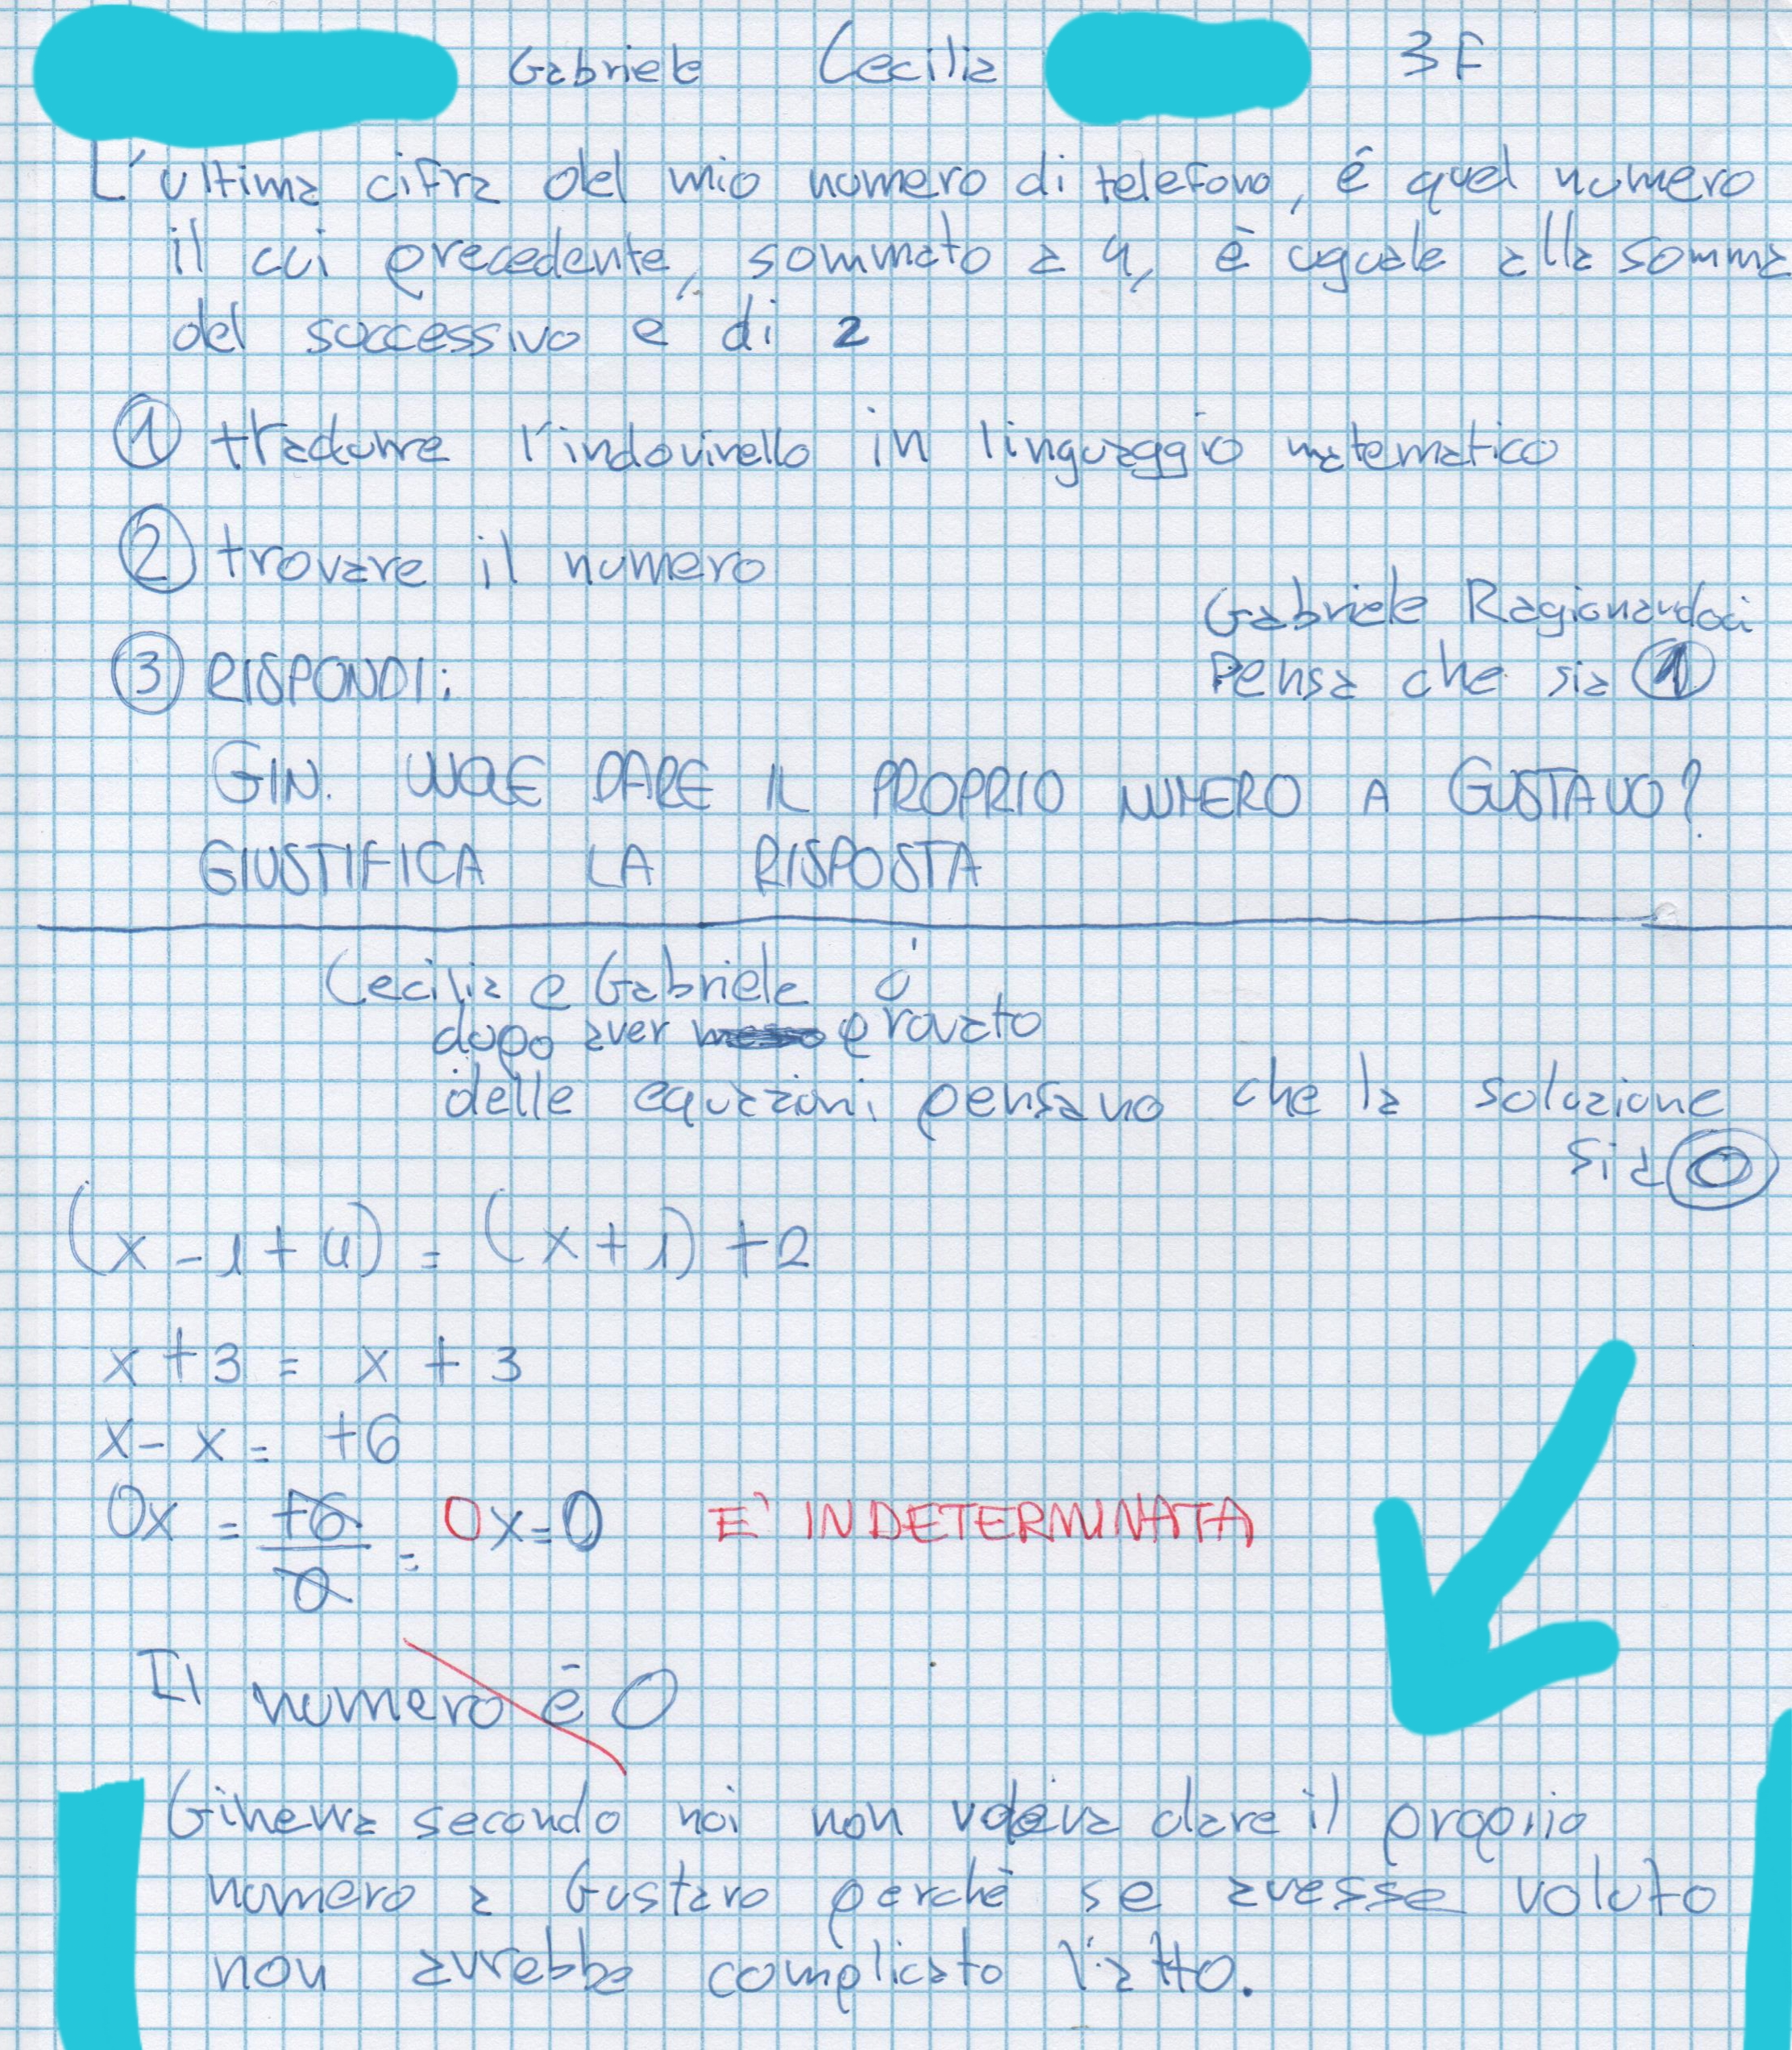 Gabriele Cecilia 3F
L'ultima cifra del mio numero di telefono, è quel numero
il cui precedente, sommato a 4, è uguale alla somma
del successivo e di 2
① tradurre l'indovinello in linguaggio matematico
② trovare il numero
③ RISPONDI:
Gabriele Ragionandoci
Pensa che sia 1
GIN. VUOLE DARE IL PROPRIO NUMERO A GUSTAVO?
GIUSTIFICA LA RISPOSTA
Cecilia e Gabriele
dopo aver provato
delle equazioni pensano che la soluzione
sia 0
(x-1+4) = (x+1)+2
x+3 = x+3
x-x = +6
0x = +6/0 = 0x=0 E' INDETERMINATA
Il numero è 0
Ginevra secondo noi non voleva dare il proprio
numero a Gustavo perchè se avesse voluto
non avrebbe complicato l'atto.